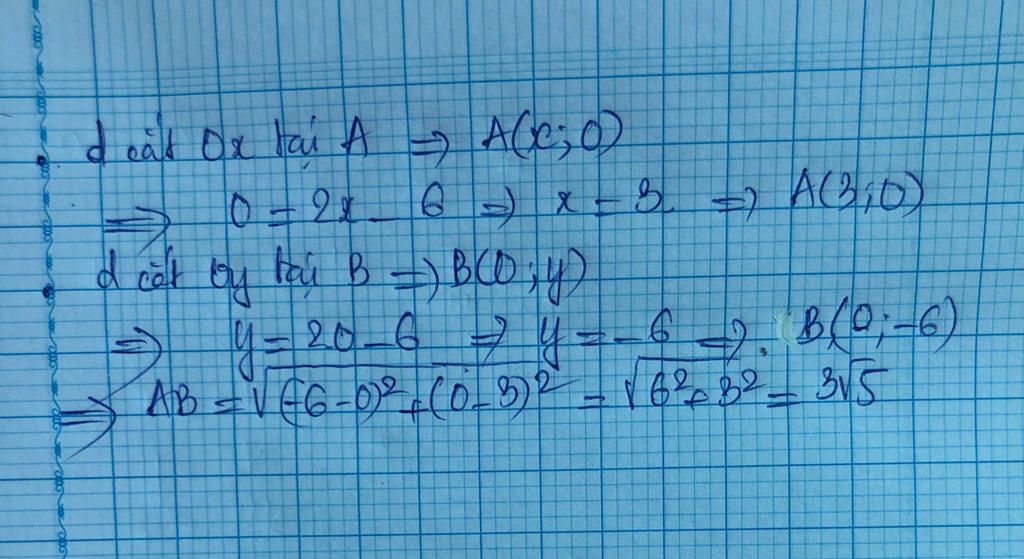 d cắt Ox tại A => A(x; 0)
=> 0 = 2x - 6 => x = 3 => A(3; 0)
d cắt Oy tại B => B(0; y)
=> y = 20 - 6 => y = -6 => B(0; -6)
=> AB = √(-6-0)² + (0-3)² = √6² + 3² = 3√5